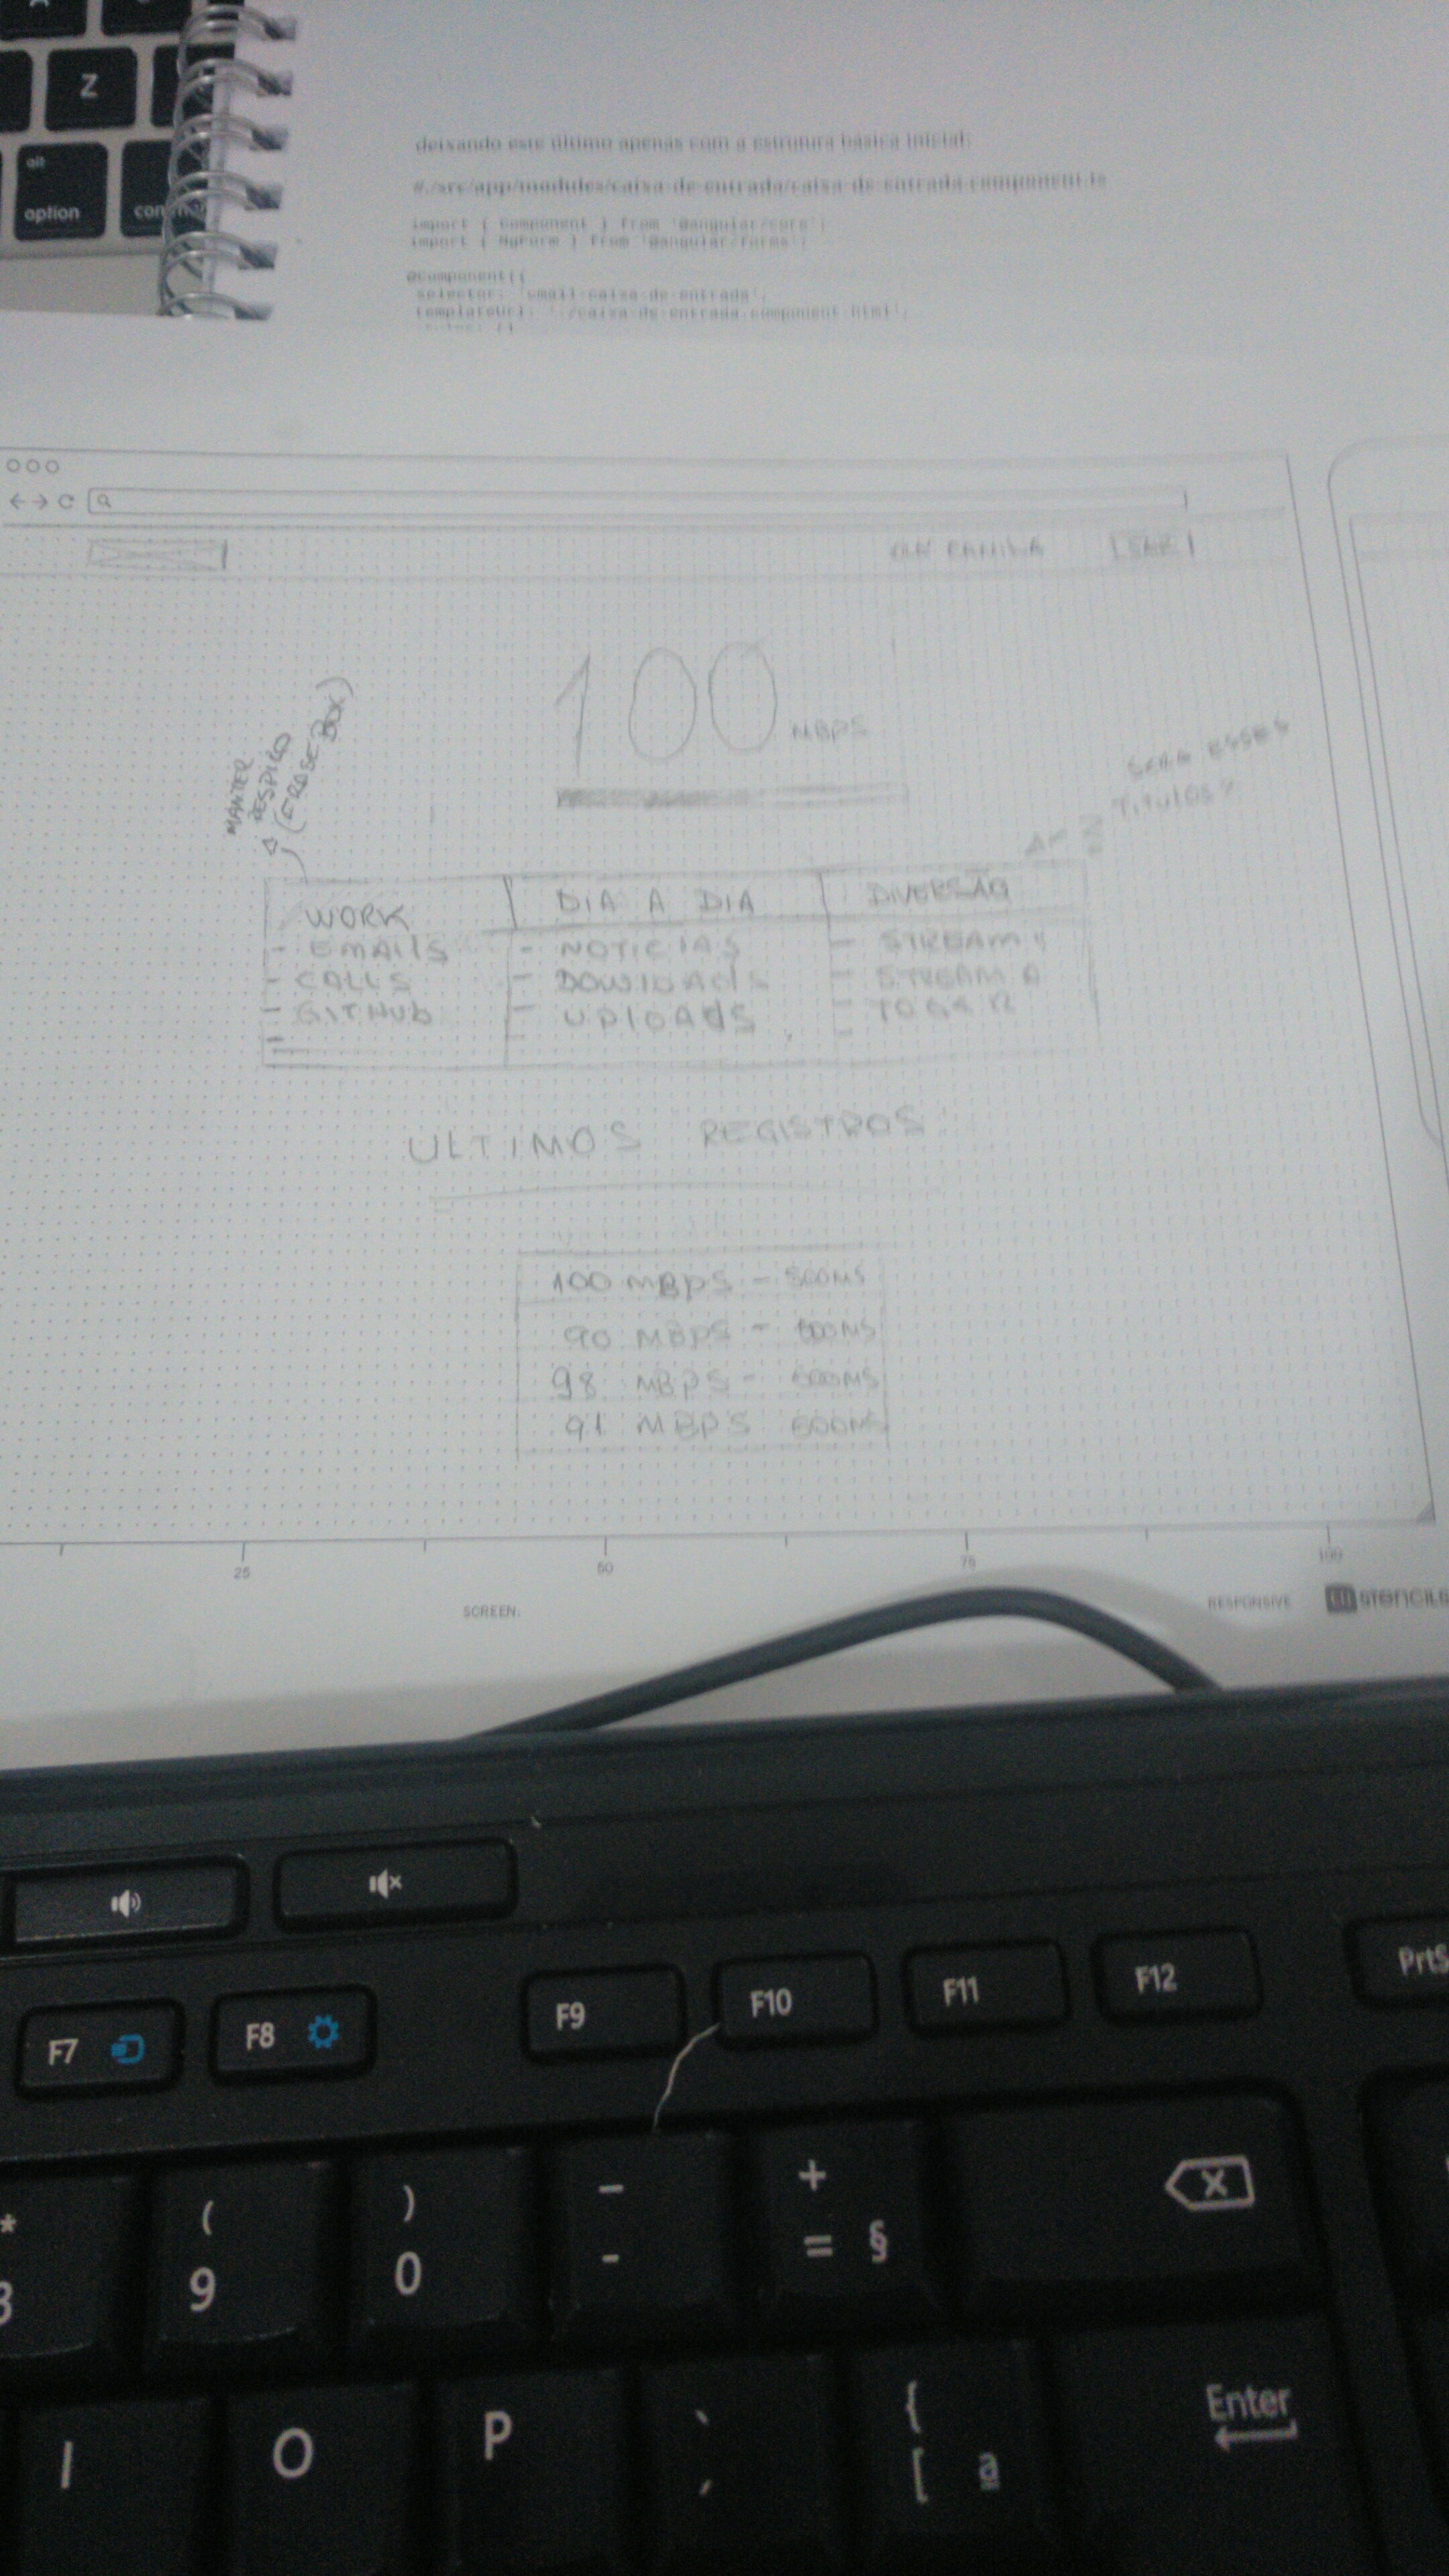 Z
alt
option
deixando este último apenas com a estrutura básica inicial:
#./src/app/modules/caixa-de-entrada/caixa-de-entrada.component.ts
import { Component } from '@angular/core';
import { NgForm } from '@angular/forms';
@Component({
selector: 'cmail-caixa-de-entrada',
templateUrl: './caixa-de-entrada.component.html',
SAIR
100 MBPS
MANTER
RESPIRO
(ERASE BOX)
SERA ESSES
TITULOS?
WORK
- EMAILS
- CALLS
- GITHUB
DIA A DIA
- NOTICIAS
- DOWLOADS
- UPLOADS
DIVERSÃO
- STREAM
- STREAM
ULTIMOS REGISTROS
100 MBPS - 500MS
90 MBPS - 600MS
98 MBPS - 600MS
91 MBPS 600MS
25
50
75
100
SCREEN.
RESPONSIVE
UI STENCILS
F7
F8
F9
F10
F11
F12
PrtS
*
(
9
)
0
-
-
+
= §
I
O
P
{
[ ª
Enter